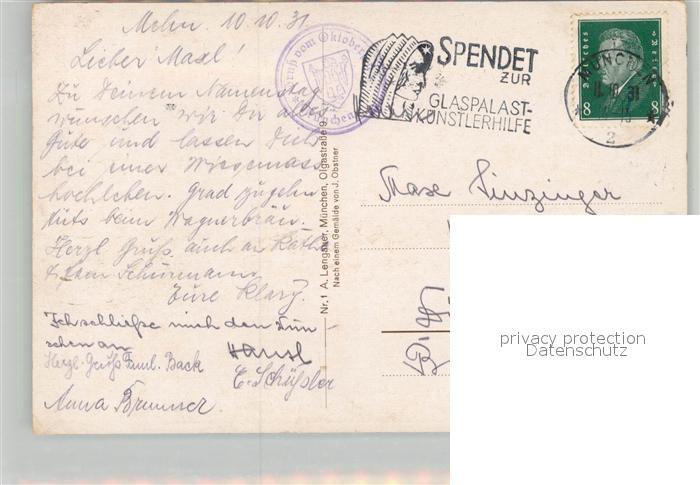 Mchn. 10.10.31
Lieber Maxl!
Zu Deinem Namenstag
wünschen wir Dir alles
Gute und lassen Dich
bei einer Wiesenmass
hochleben. Grad zugehn
tuts beim Wagnerbräu.
Herzl. Grüße auch an
Eure Klary.
Ich schließe mich den Wün-
schen an
Hansl
Herzl. Gruß Faml. Back
E. Schüßler
Anna Brunner.
Gruß vom Oktober
München
SPENDET
ZUR
GLASPALAST-
KÜNSTLERHILFE
MÜNCHEN
2
Deutsches Reich
8 8
Nr. 1 A. Lengauer, München, Olgastraße 9
Nach einem Gemälde von J. Obstner
Maxe Linzinger
privacy protection
Datenschutz